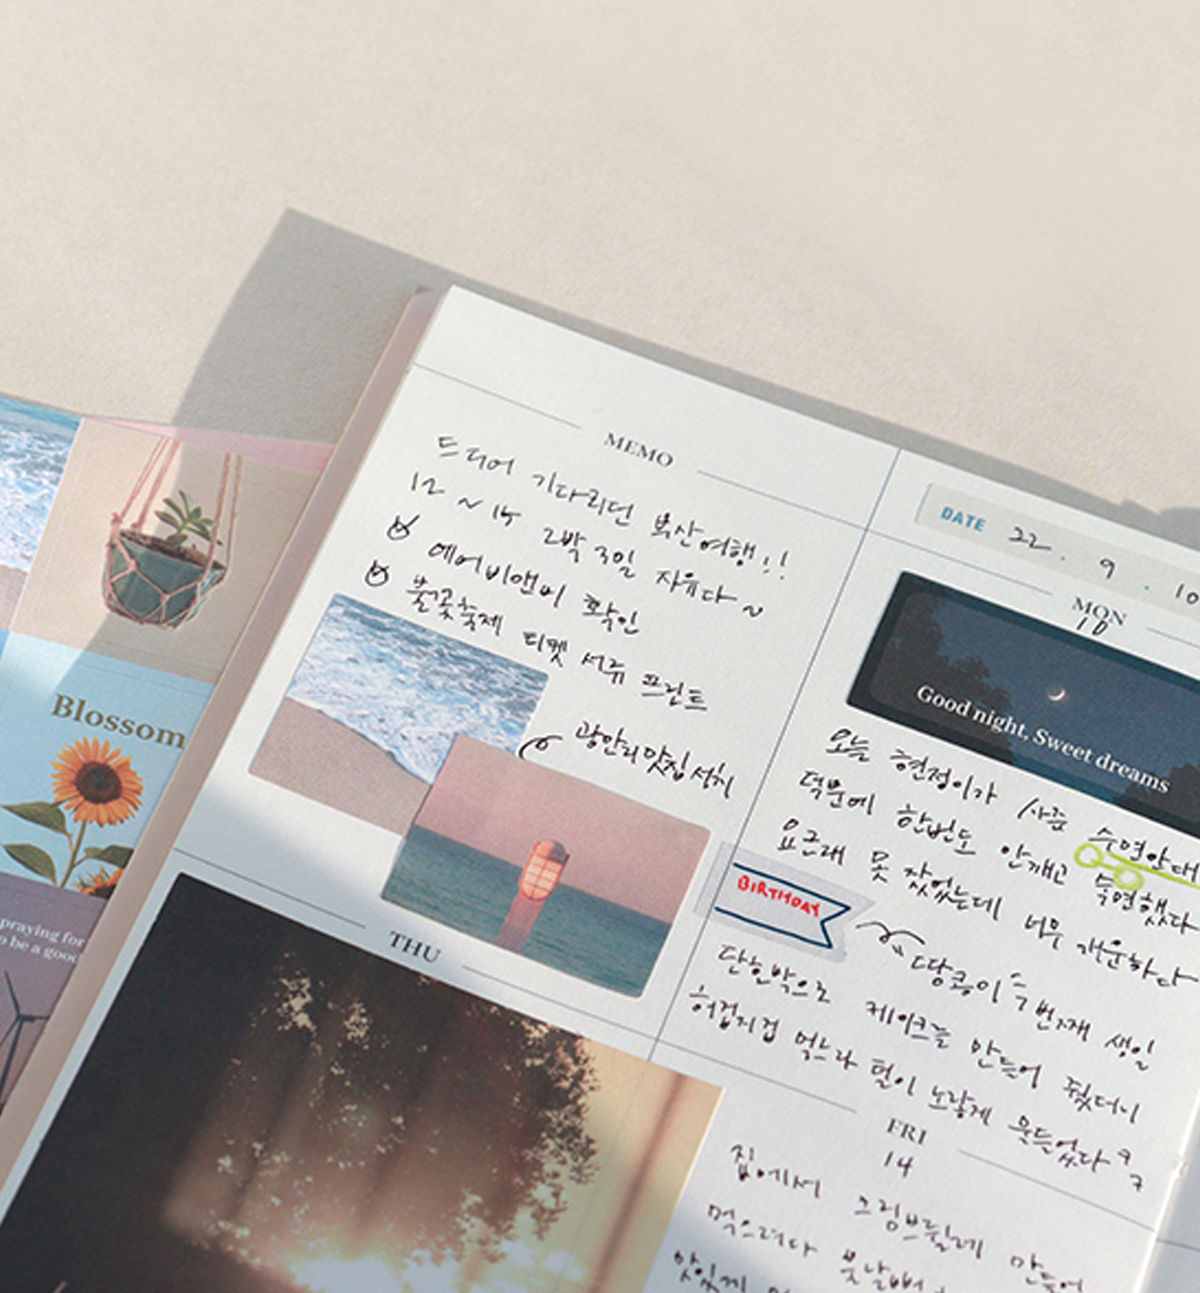 Blossom
praying for
o be a good
MEMO
드디어 기다리던 부산여행!!
12 ~ 14 2박 3일 자유다~
에어비앤비 확인
불꽃축제 티켓 서류 프린트
광안리맛집 서치
THU
DATE 22. 9. 10
MON
10
Good night, Sweet dreams
오늘 현정이가 사준 수면안대
덕분에 한번도 안깨고 숙면했다
요근래 못 잤었는데 너무 개운하다
BIRTHDAY
땅콩이 두번째 생일
단호박으로 케이크를 만들어 줬더니
허겁지겁 먹느라 털이 노랗게 물들었다 ㅋㅋ
FRI
14
집에서 크림브륄레 만들어
먹으려다
맛있게